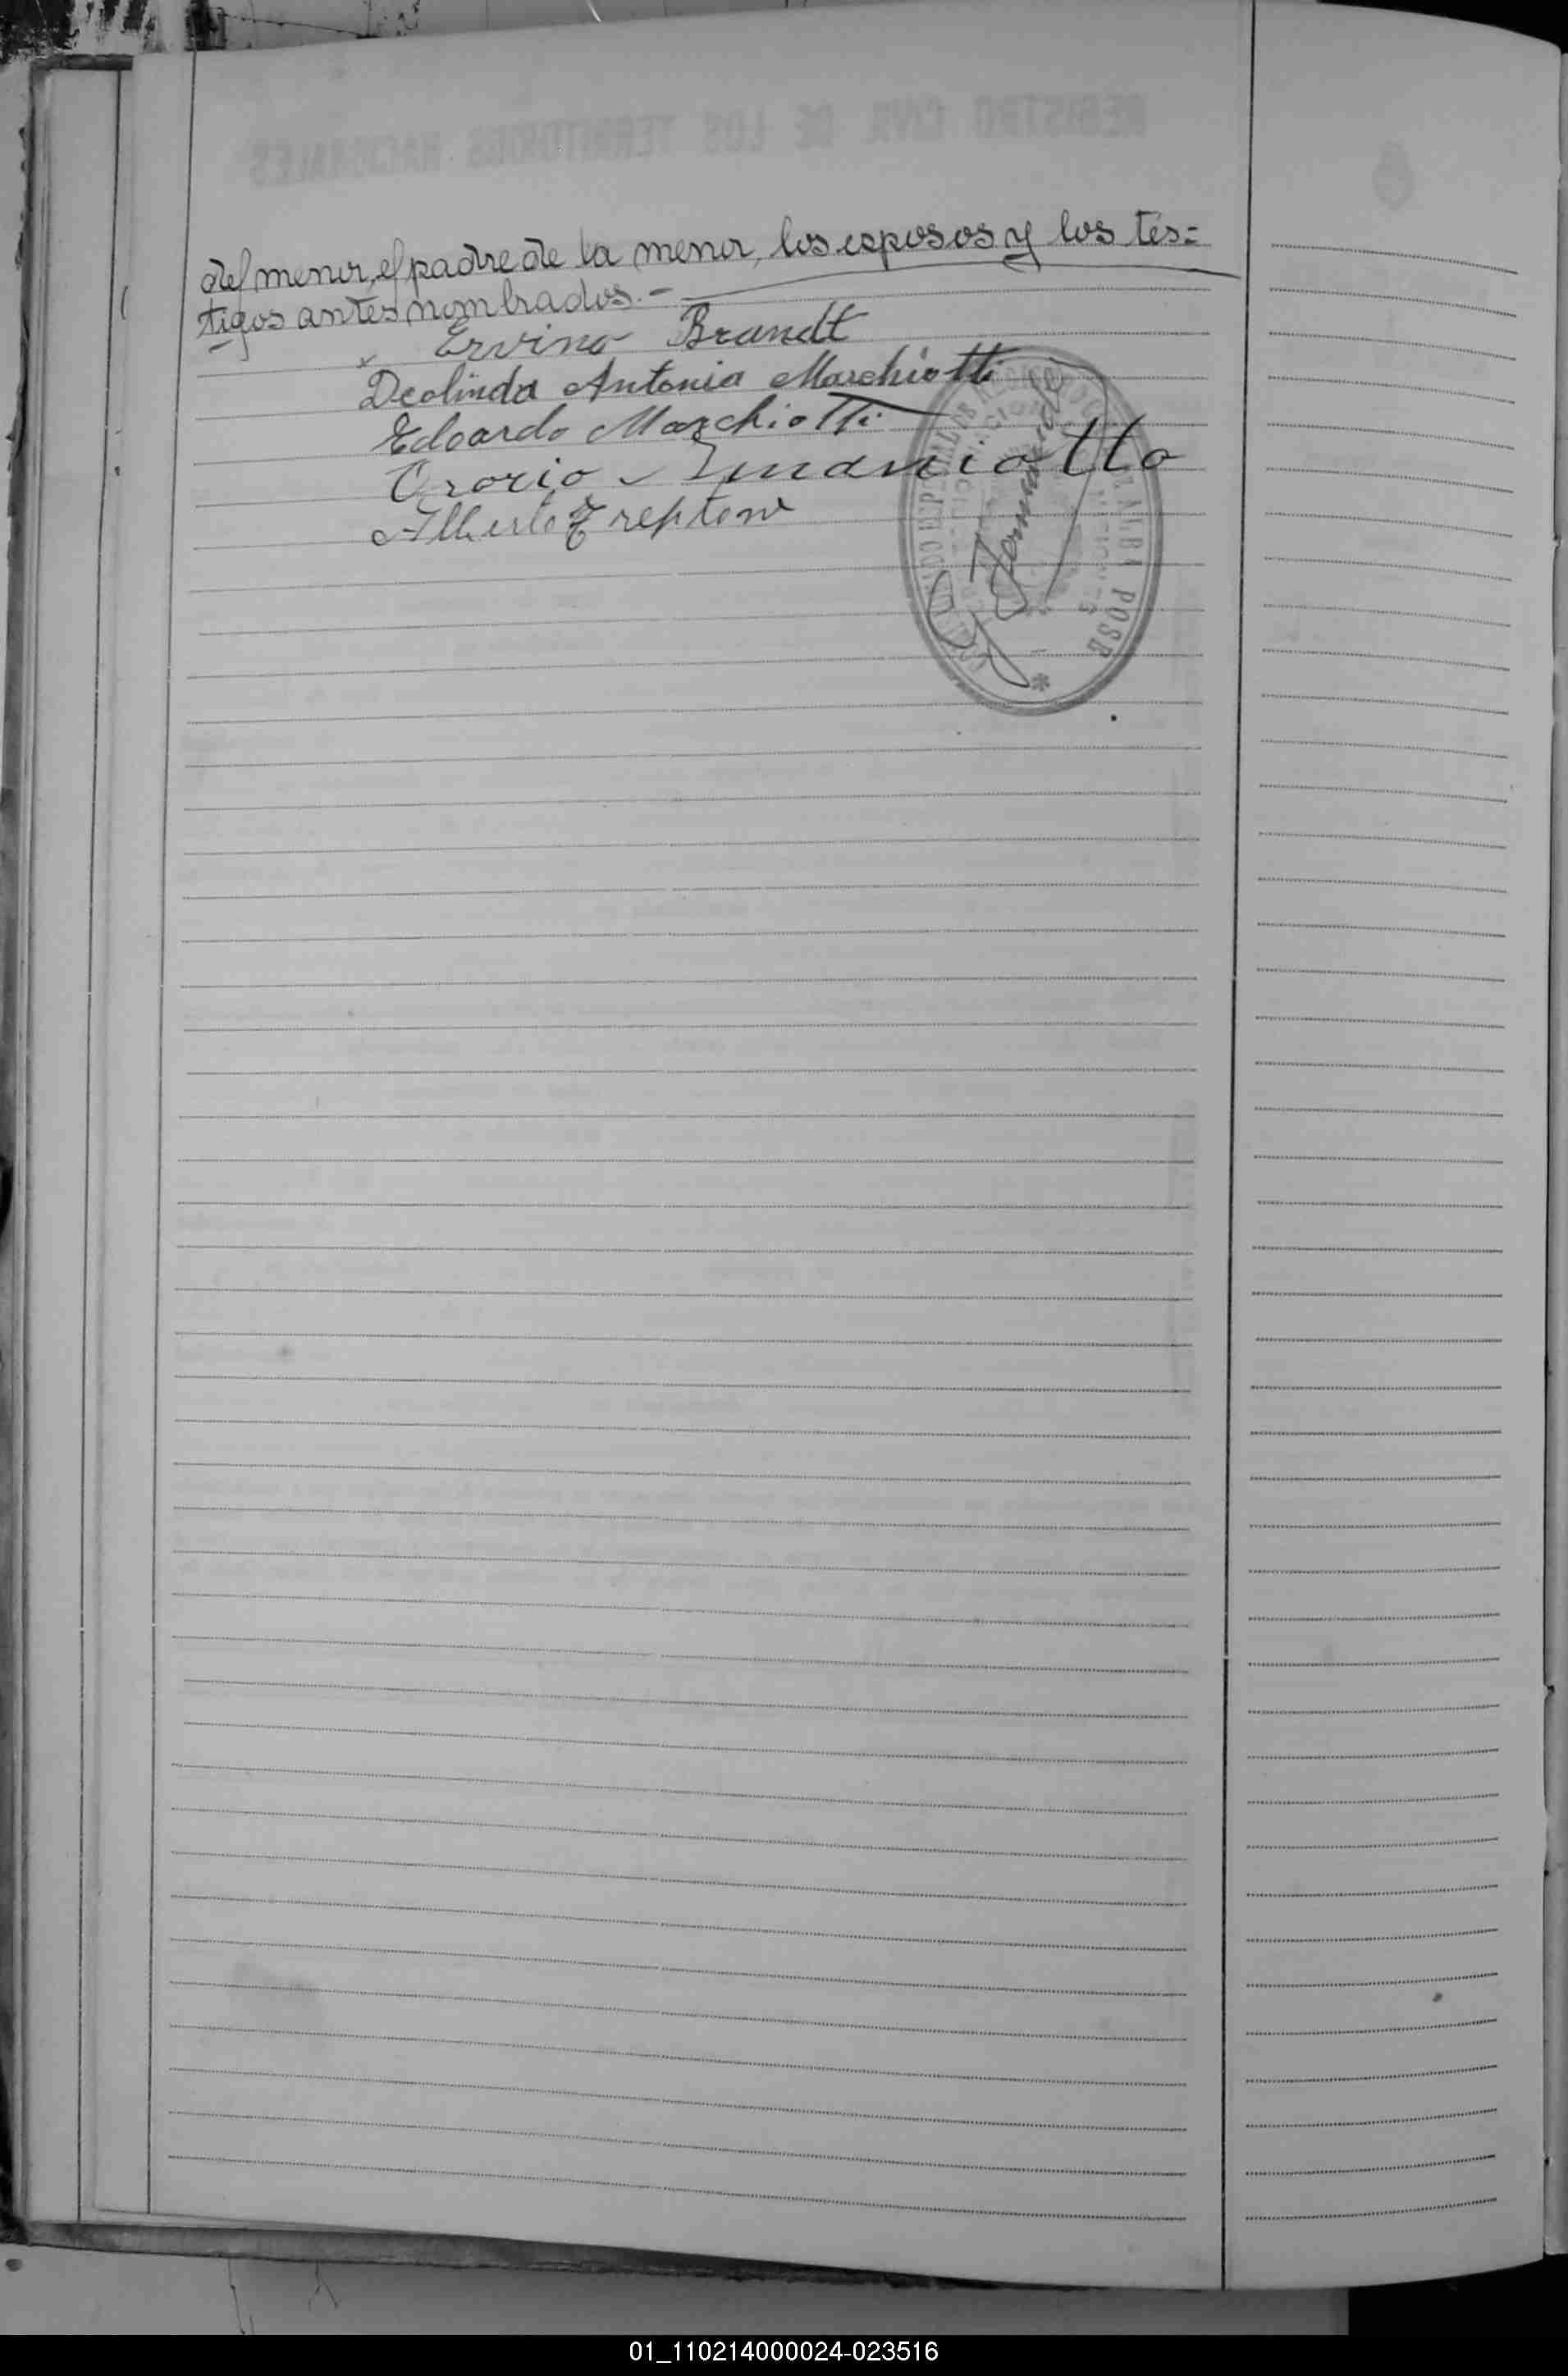 del menor, el padre de la menor, los esposos y los tes=
tigos antes nombrados.-
Ervino Brandt
Deolinda Antonia Marchiotti
Edoardo Marchiotti
Alberto Treptow
ALBA POSE
01_110214000024-023516